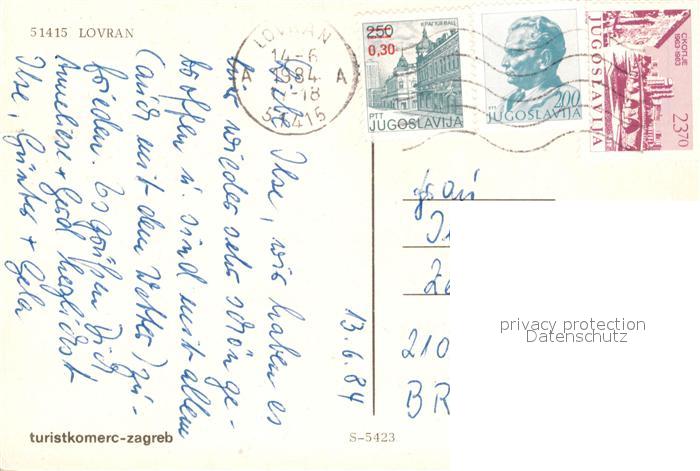 51415 LOVRAN
LOVRAN
14-6
A 1984 A
-18
51415
2.50
0,30
КРАГУЈЕВАЦ
PTT
JUGOSLAVIJA
PTT
2.00
JUGOSLAVIJA
СКОПЈЕ
1963 1983
JUGOSLAVIJA
23.70
Liebe Ilse, wir haben es
hier wieder sehr schön ge-
troffen u. sind mit allem
(auch mit dem Wetter) zu-
frieden. Es grüßen Dich
Anneliese + Gerd herzlichst
Ilse, Günter + Gela
13.6.84
Frau
210
BR
privacy protection
Datenschutz
turistkomerc-zagreb
S-5423